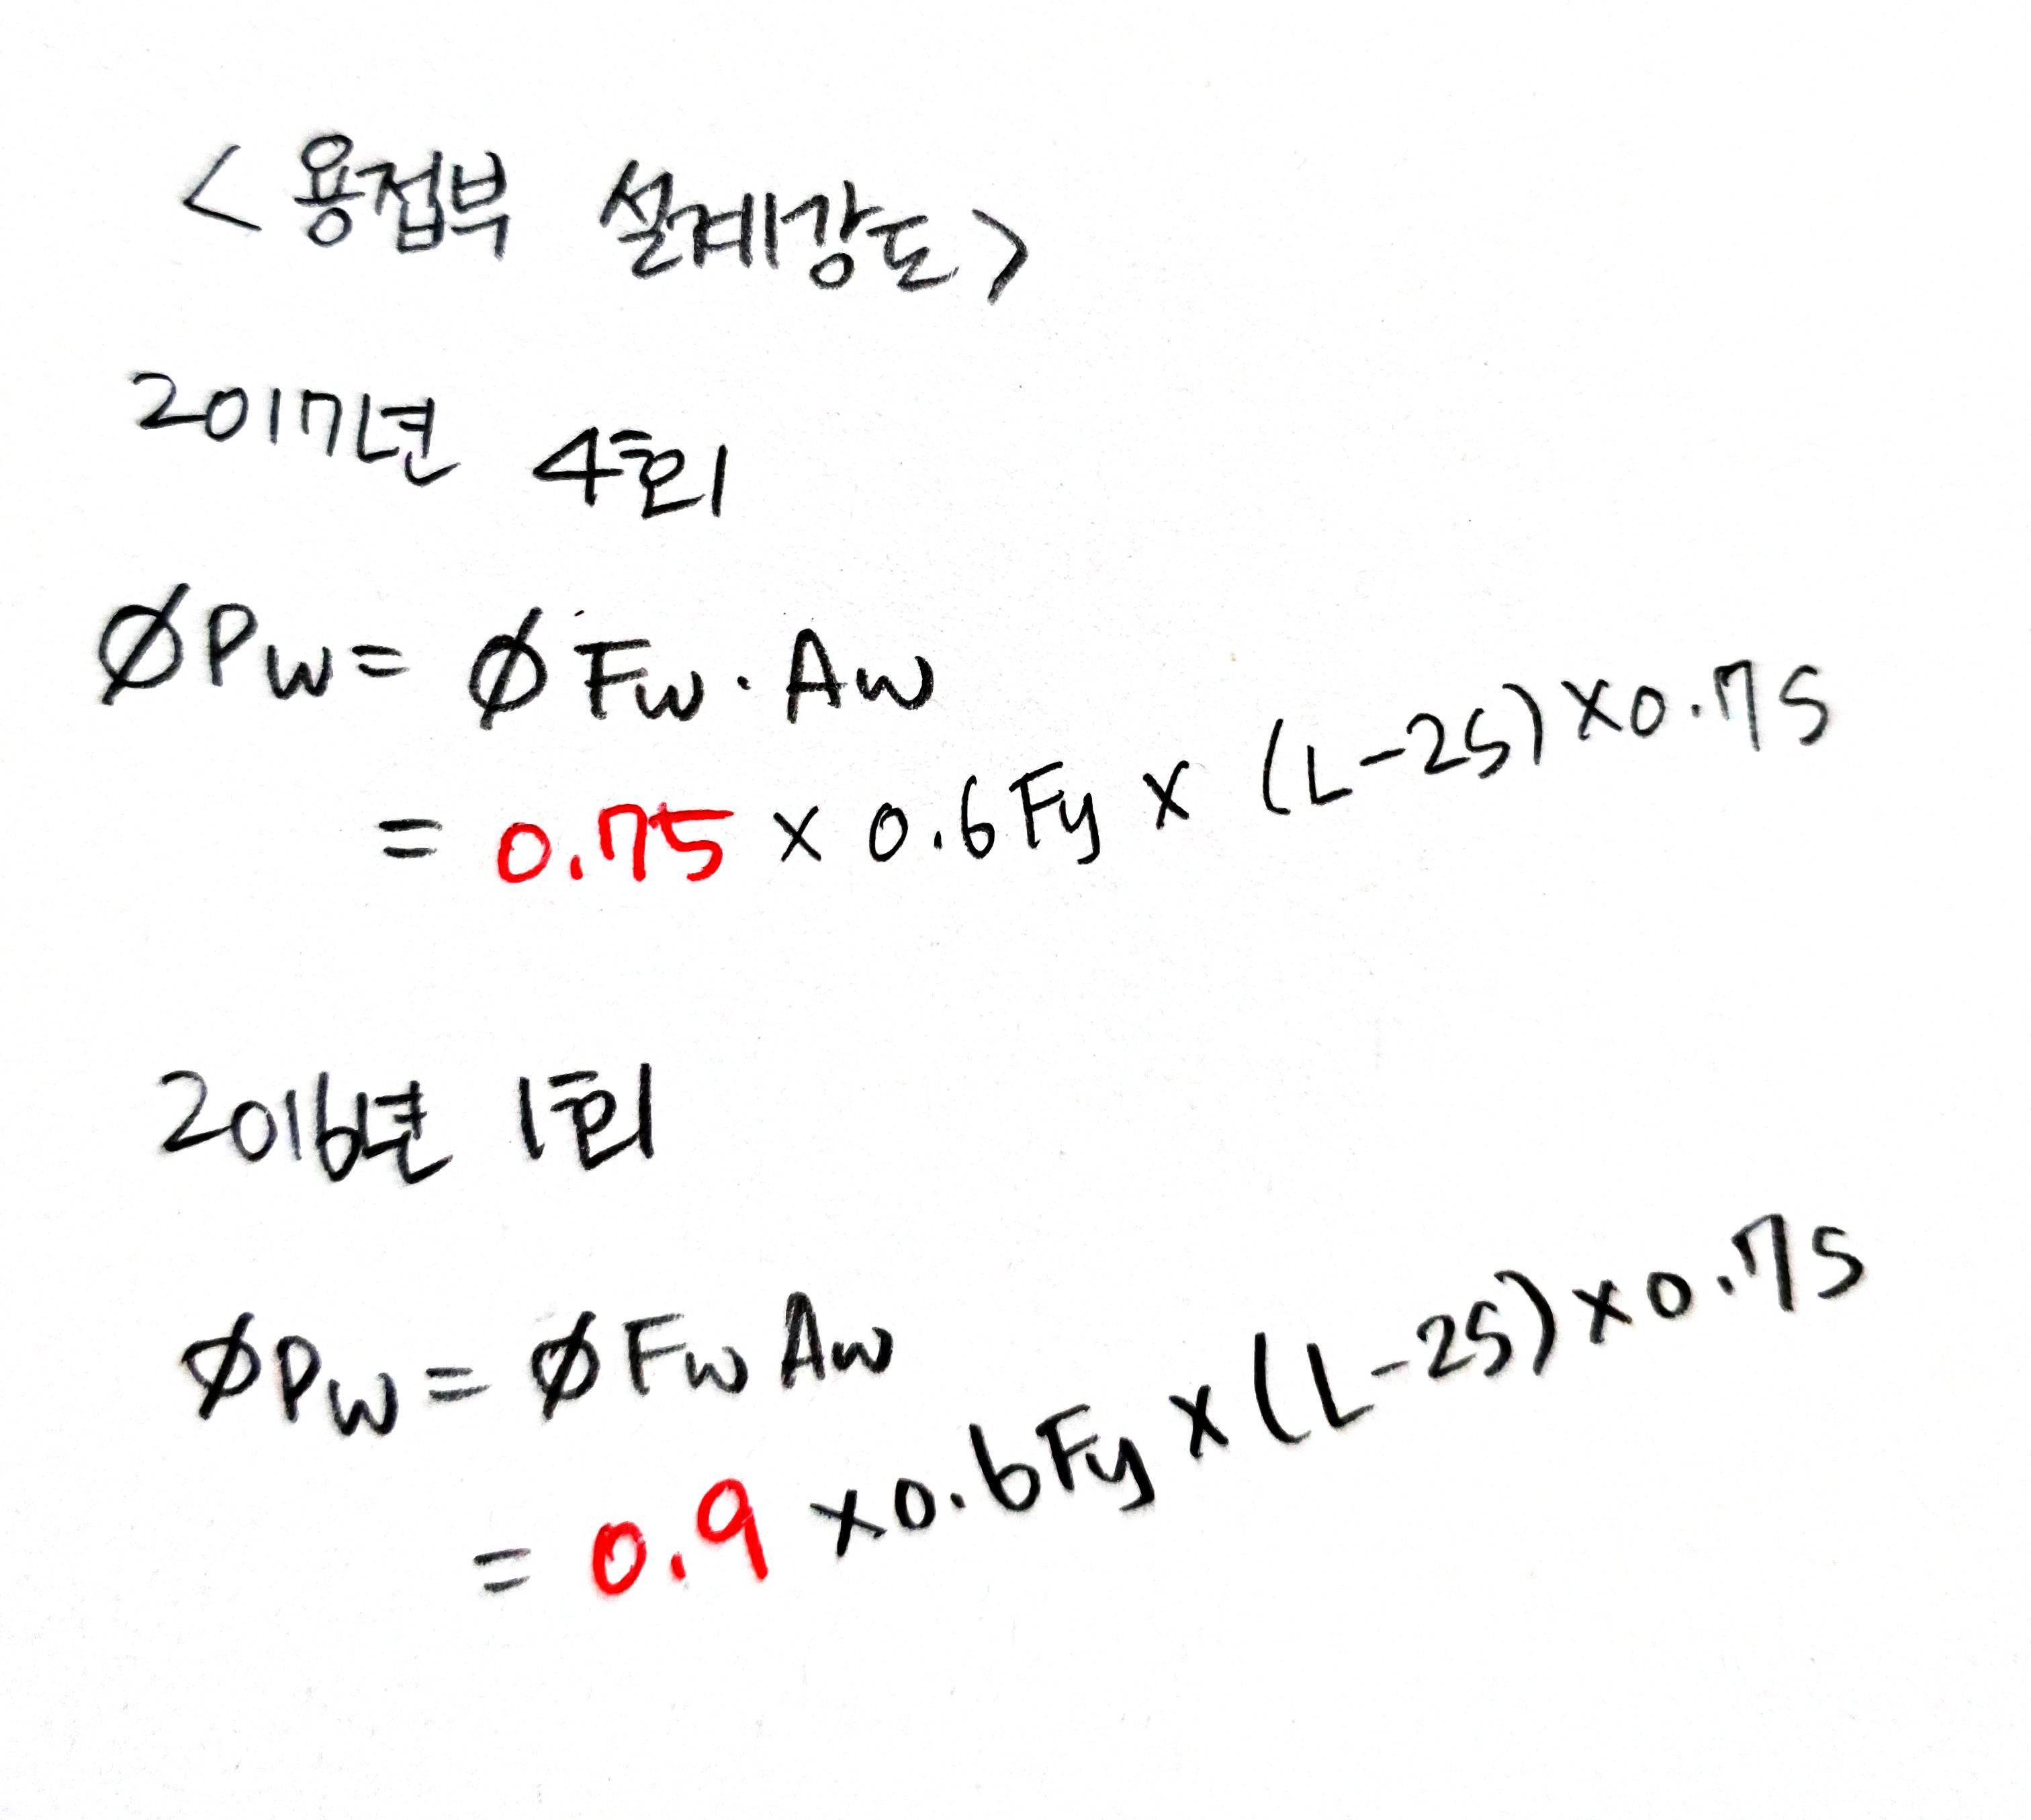 <용접부 설계강도>
2017년 4회
ØPw= ØFw·Aw
= 0.75 × 0.6Fy × (L-2S)×0.7S
2016년 1회
ØPw= ØFwAw
= 0.9 ×0.6Fy×(L-2S)×0.7S